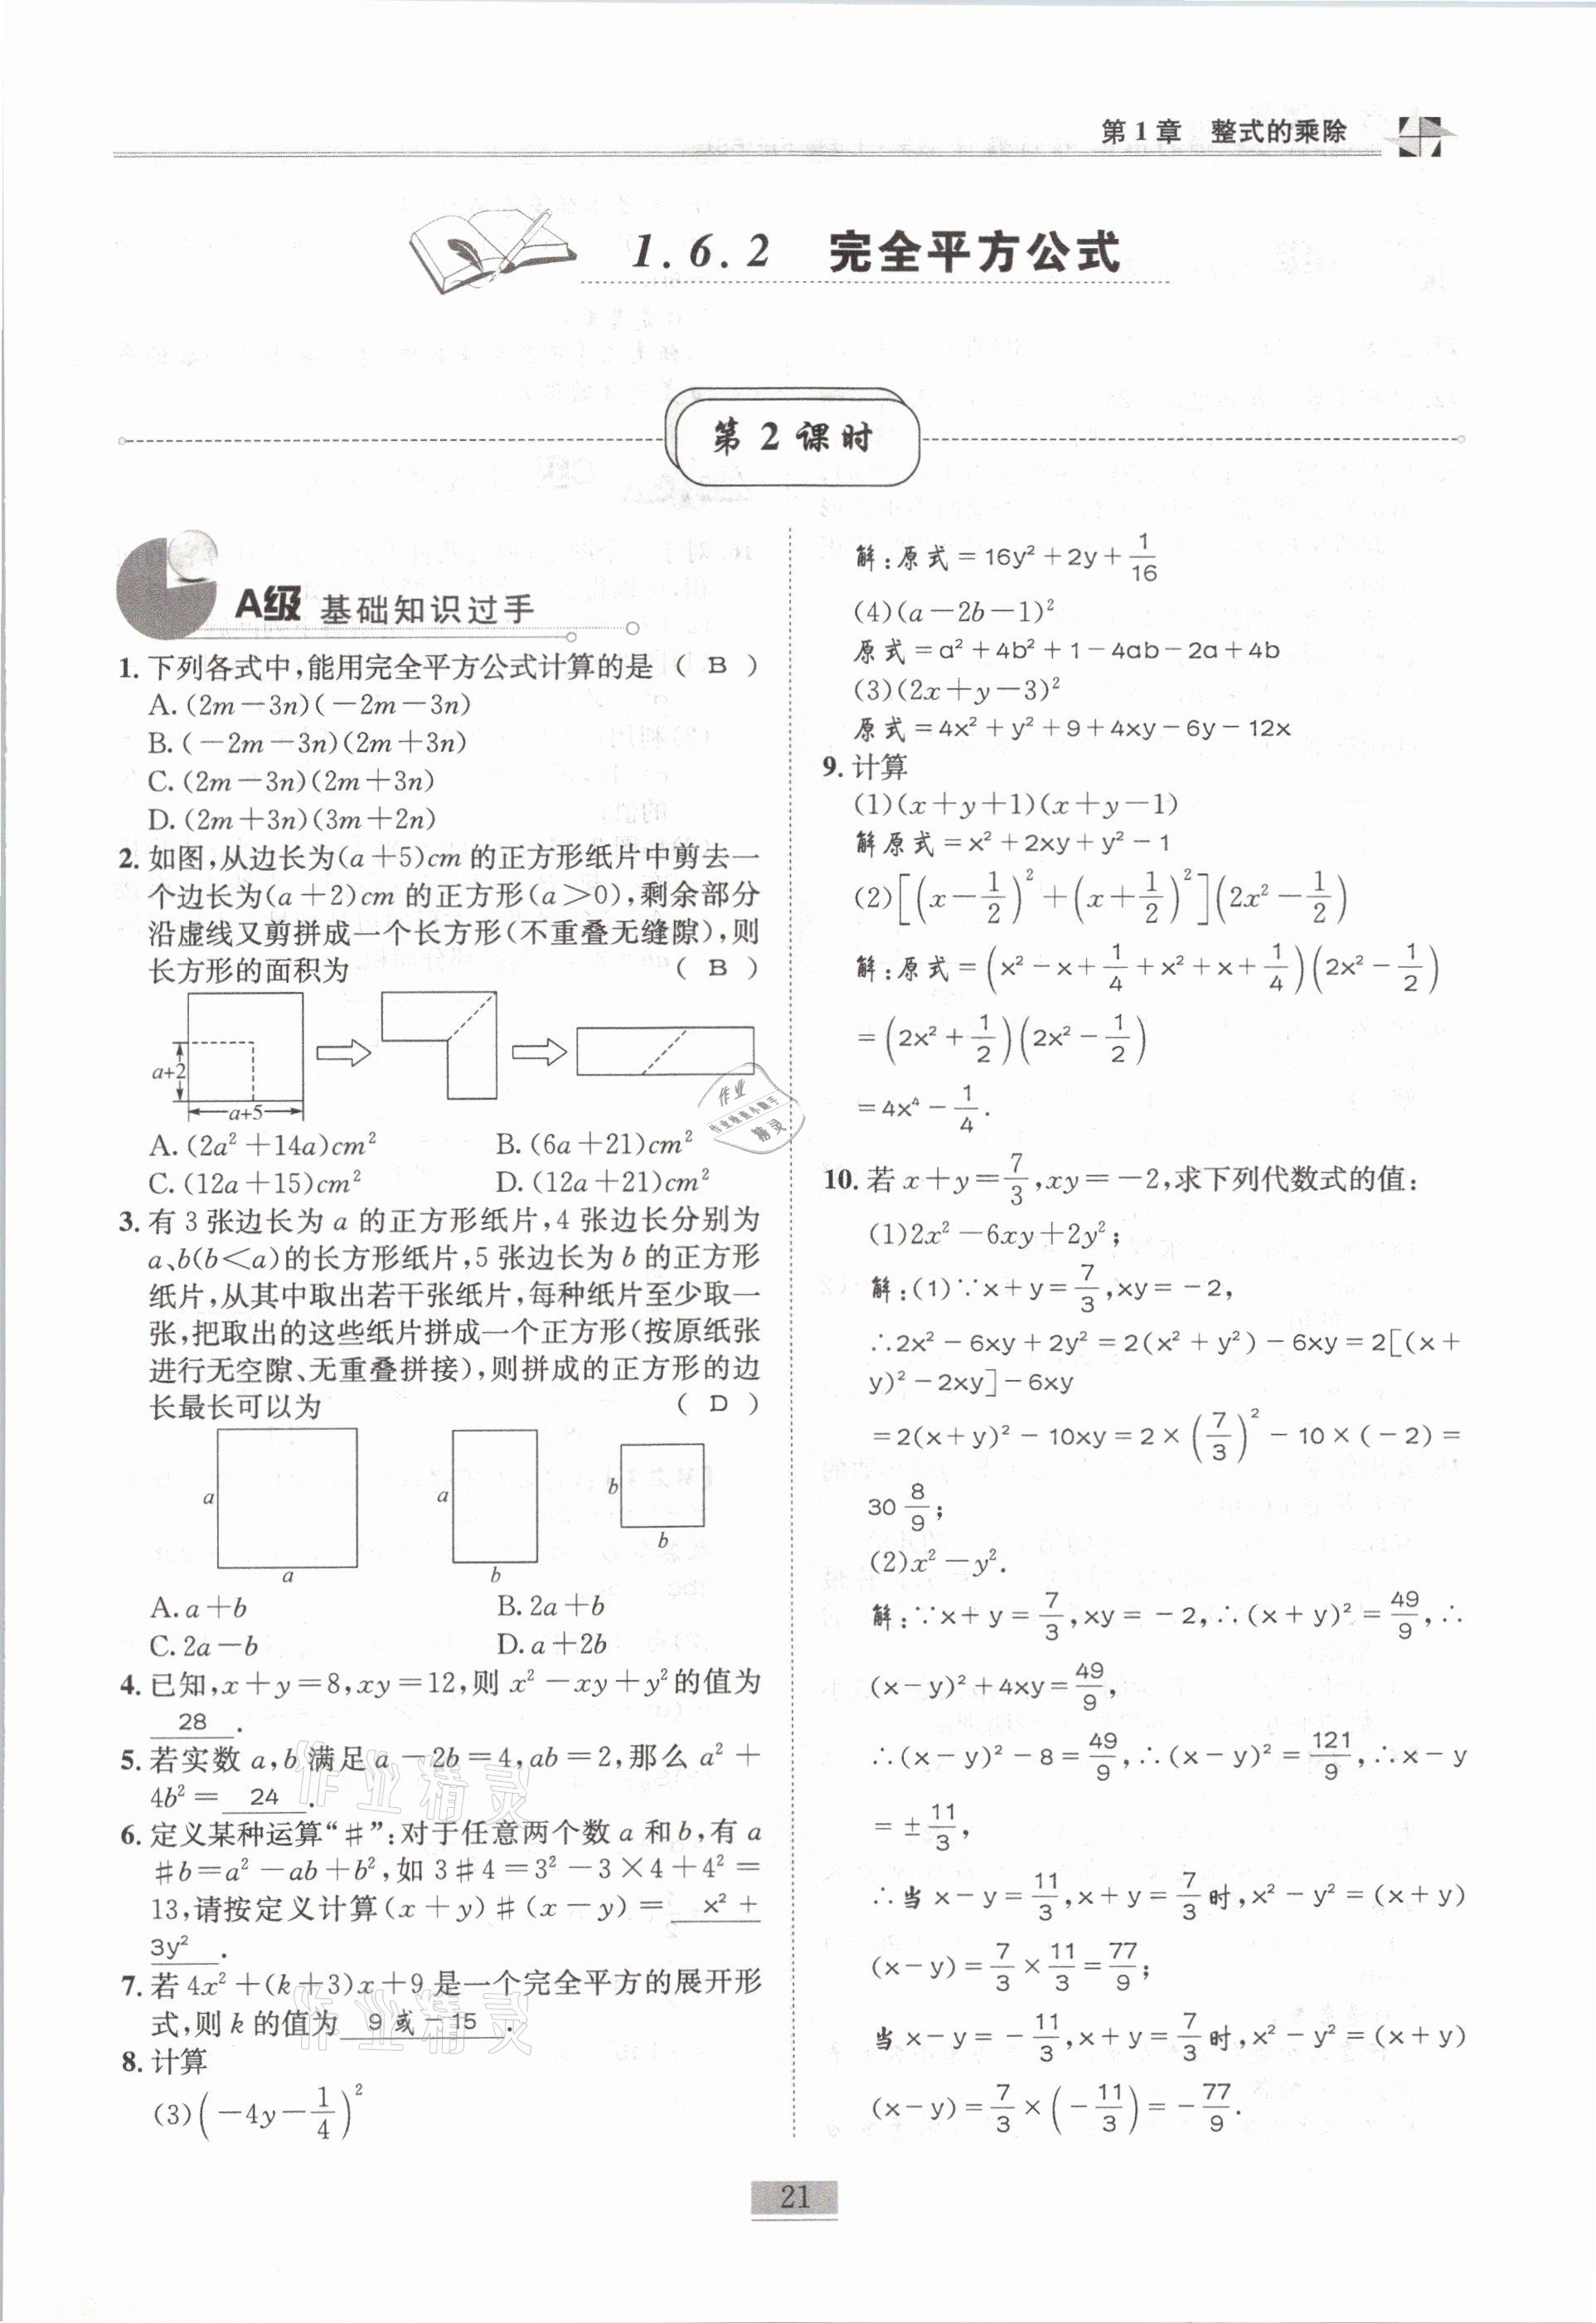 第1章 整式的乘除
1.6.2 完全平方公式
第2课时
A级 基础知识过手
1. 下列各式中,能用完全平方公式计算的是 ( B )
A. (2m-3n)(-2m-3n)
B. (-2m-3n)(2m+3n)
C. (2m-3n)(2m+3n)
D. (2m+3n)(3m+2n)
2. 如图,从边长为(a+5)cm 的正方形纸片中剪去一
个边长为(a+2)cm 的正方形(a>0),剩余部分
沿虚线又剪拼成一个长方形(不重叠无缝隙),则
长方形的面积为 ( B )
a+2
a+5
A. (2a²+14a)cm² B. (6a+21)cm²
C. (12a+15)cm² D. (12a+21)cm²
3. 有 3 张边长为 a 的正方形纸片,4 张边长分别为
a、b(b<a)的长方形纸片,5 张边长为 b 的正方形
纸片,从其中取出若干张纸片,每种纸片至少取一
张,把取出的这些纸片拼成一个正方形(按原纸张
进行无空隙、无重叠拼接),则拼成的正方形的边
长最长可以为 ( D )
a a b
a b b
A. a+b B. 2a+b
C. 2a-b D. a+2b
4. 已知,x+y=8,xy=12,则 x²-xy+y²的值为
28 .
5. 若实数 a,b 满足 a-2b=4,ab=2,那么 a²+
4b²= 24 .
6. 定义某种运算“#”:对于任意两个数 a 和 b,有 a
#b=a²-ab+b²,如 3#4=3²-3×4+4²=
13,请按定义计算(x+y)#(x-y)= x²+
3y² .
7. 若 4x²+(k+3)x+9 是一个完全平方的展开形
式,则 k 的值为 9或-15 .
8. 计算
(3)(-4y-1/4)²
解:原式=16y²+2y+1/16
(4)(a-2b-1)²
原式=a²+4b²+1-4ab-2a+4b
(3)(2x+y-3)²
原式=4x²+y²+9+4xy-6y-12x
9. 计算
(1)(x+y+1)(x+y-1)
解原式=x²+2xy+y²-1
(2)[(x-1/2)²+(x+1/2)²](2x²-1/2)
解:原式=(x²-x+1/4+x²+x+1/4)(2x²-1/2)
=(2x²+1/2)(2x²-1/2)
=4x⁴-1/4.
10. 若 x+y=7/3,xy=-2,求下列代数式的值:
(1)2x²-6xy+2y²;
解:(1)∵x+y=7/3,xy=-2,
∴2x²-6xy+2y²=2(x²+y²)-6xy=2[(x+
y)²-2xy]-6xy
=2(x+y)²-10xy=2×(7/3)²-10×(-2)=
30 8/9;
(2)x²-y².
解:∵x+y=7/3,xy=-2,∴(x+y)²=49/9,∴
(x-y)²+4xy=49/9,
∴(x-y)²-8=49/9,∴(x-y)²=121/9,∴x-y
=±11/3,
∴当 x-y=11/3,x+y=7/3时,x²-y²=(x+y)
(x-y)=7/3×11/3=77/9;
当 x-y=-11/3,x+y=7/3时,x²-y²=(x+y)
(x-y)=7/3×(-11/3)=-77/9.
21
作业
作业检查小助手
精灵
作业精灵
作业精灵